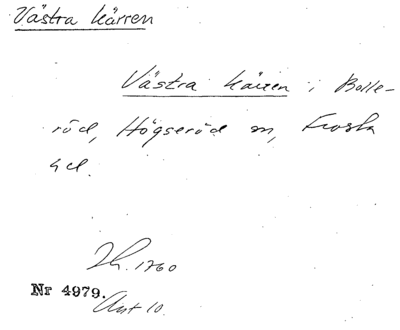 Västra Kärren
Västra Kärren i Bolle-
röd, Högseröd sn, Frosta
hd.
Zh. 1760
Nr 4979.
Avt 10.